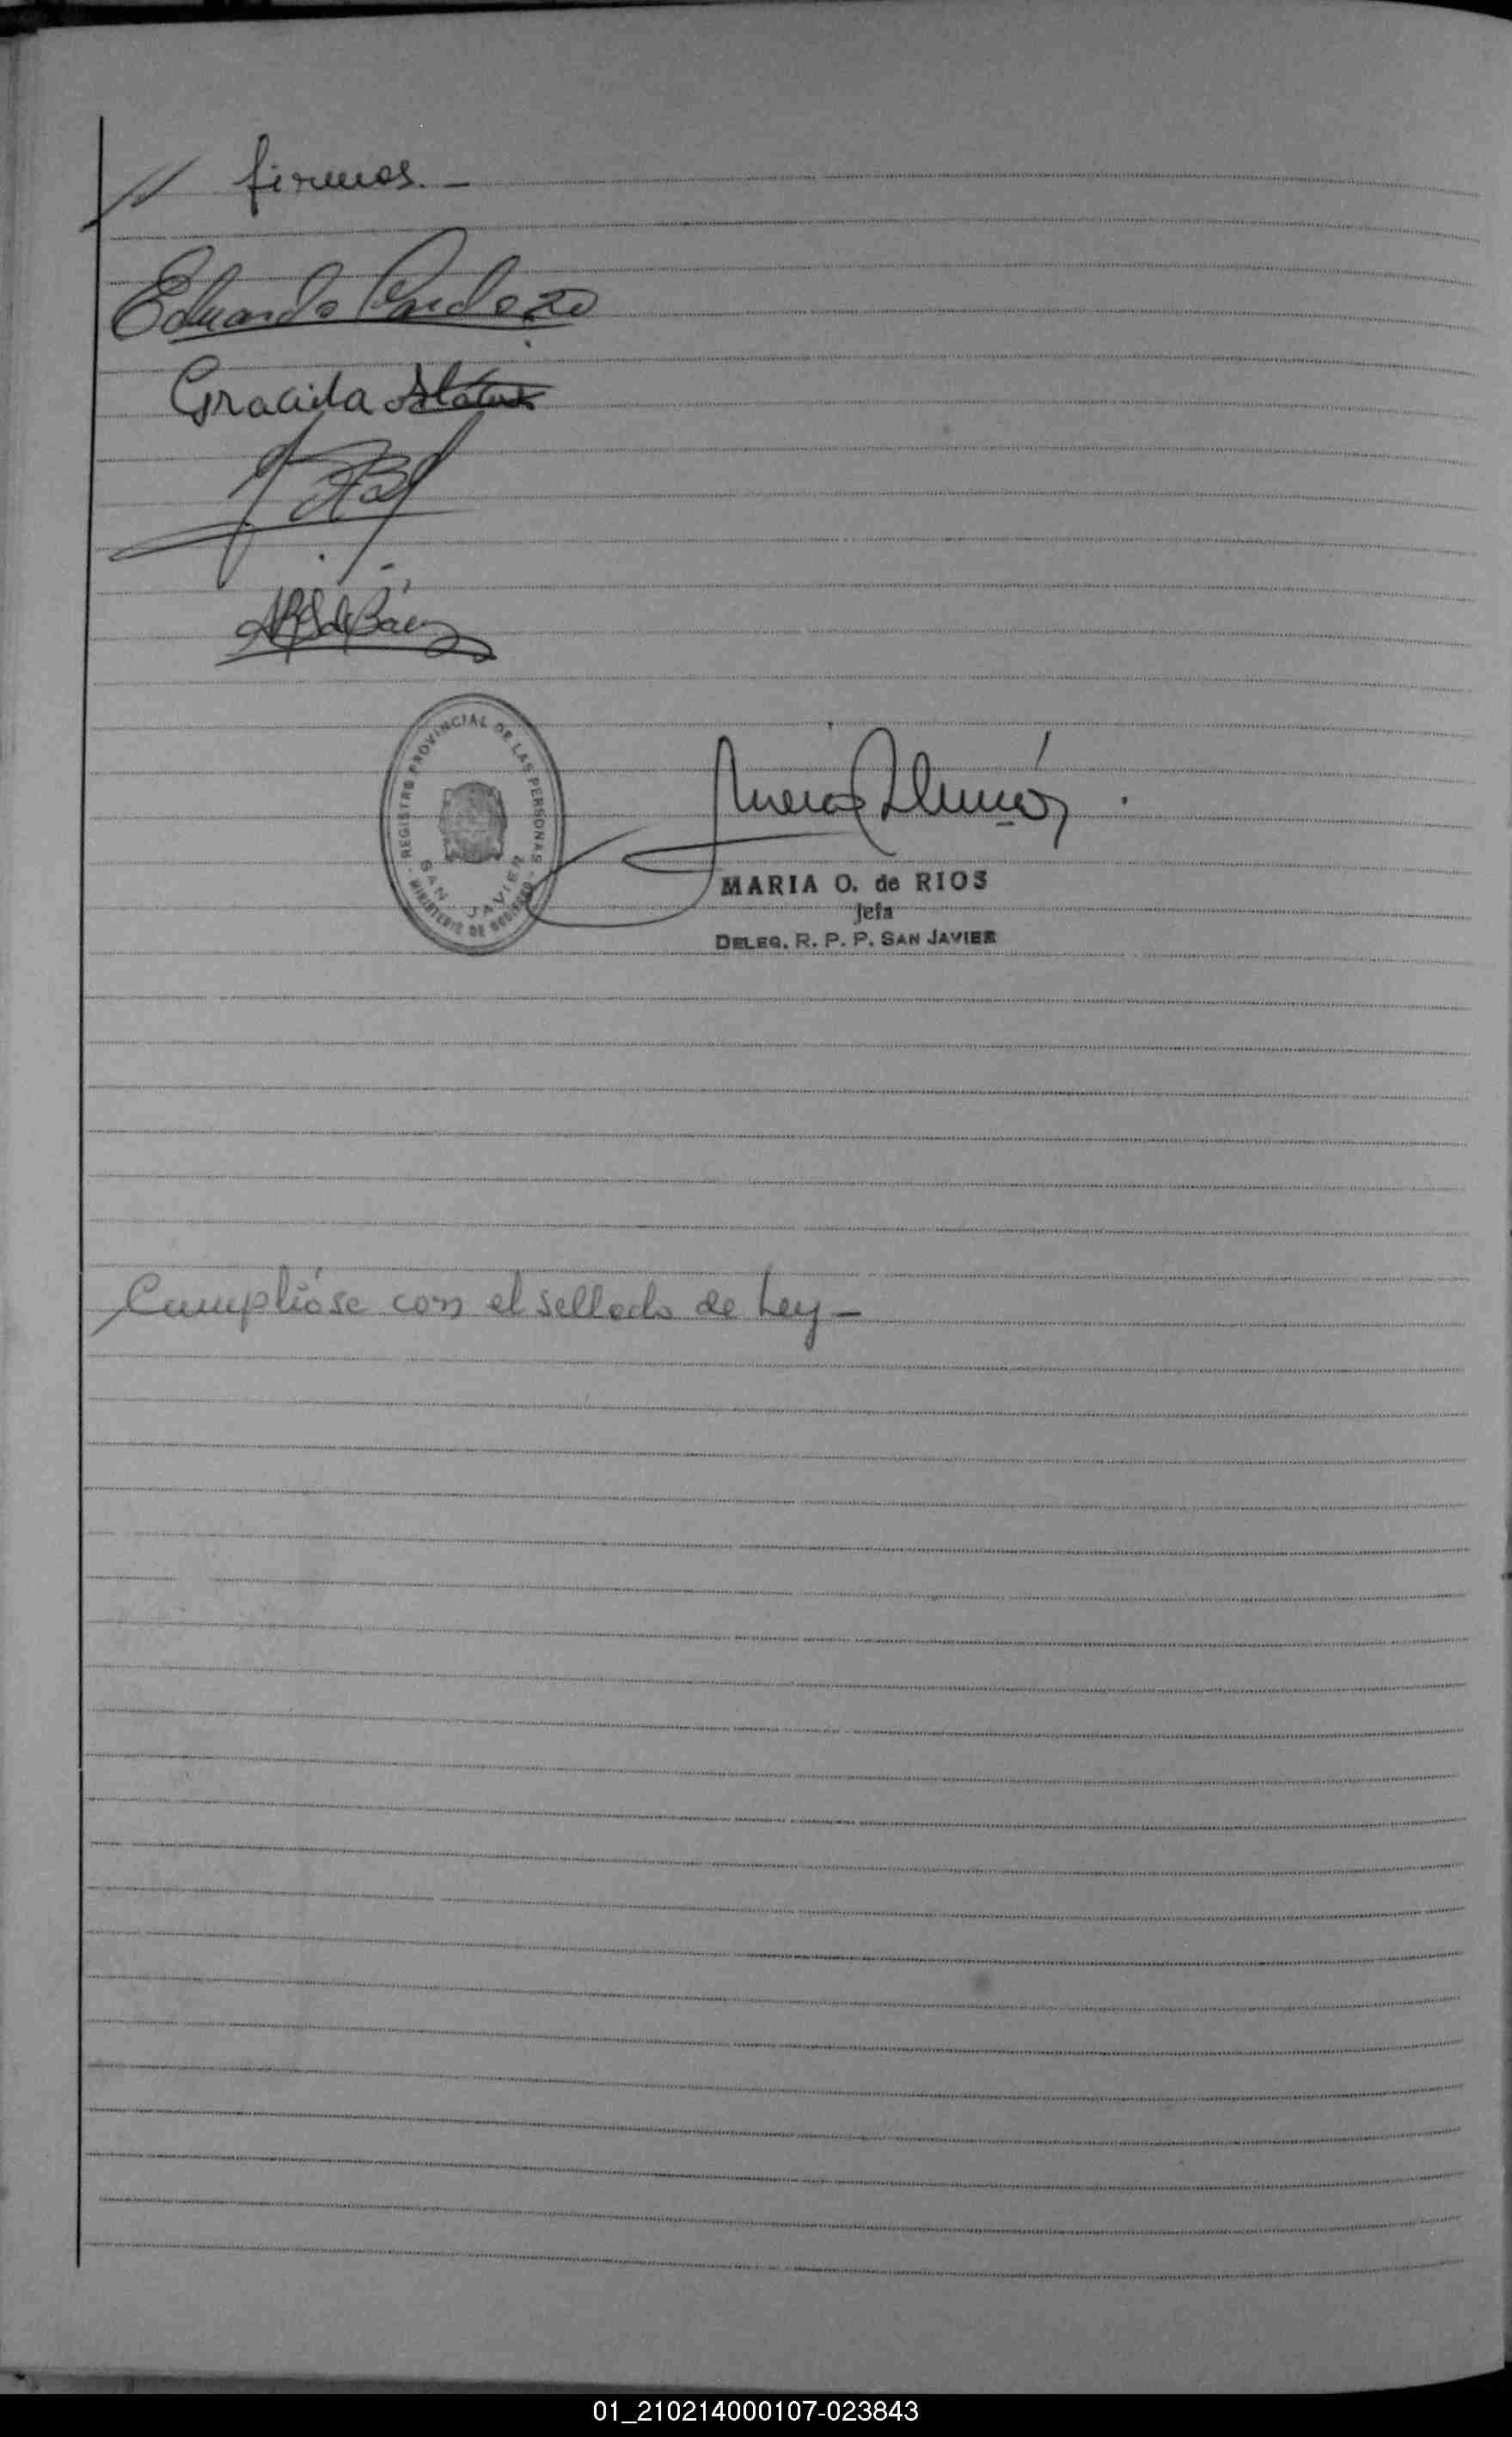 // firmas. -
Eduardo Cardozo
Graciela
de Báez
REGISTRO PROVINCIAL DE LAS PERSONAS
SAN JAVIER
MINISTERIO DE GOBIERNO
MARIA O. de RIOS
Jefa
DELEG. R. P. P. SAN JAVIER
Cumplióse con el sellado de Ley -
01_210214000107-023843